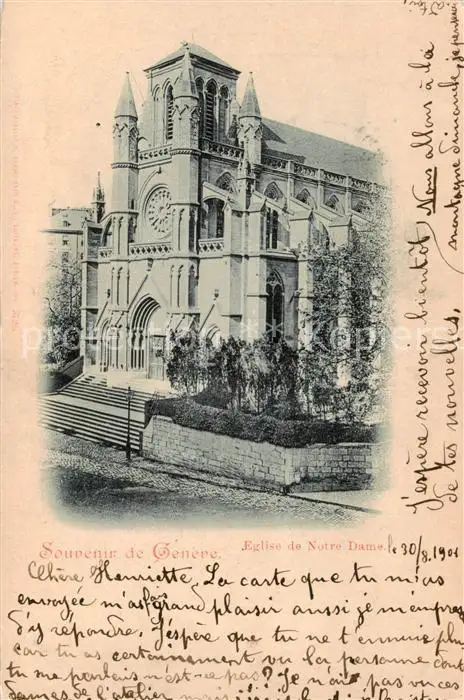 Souvenir de Genève.
Eglise de Notre Dame.
le 30/8. 1901
Chère Henriette, La carte que tu m'as
envoyée m'a fait grand plaisir aussi je m'empres
d'y répondre. J'espère que tu ne t'ennuie plus
car tu as certainement vu la personne dont
tu me parlais n'est-ce pas? Je n'ai pas vu ces
dames de l'atelier mais
J'espère recevoir bientôt
de tes nouvelles.
Nous allons à la
montagne dimanche, je pense